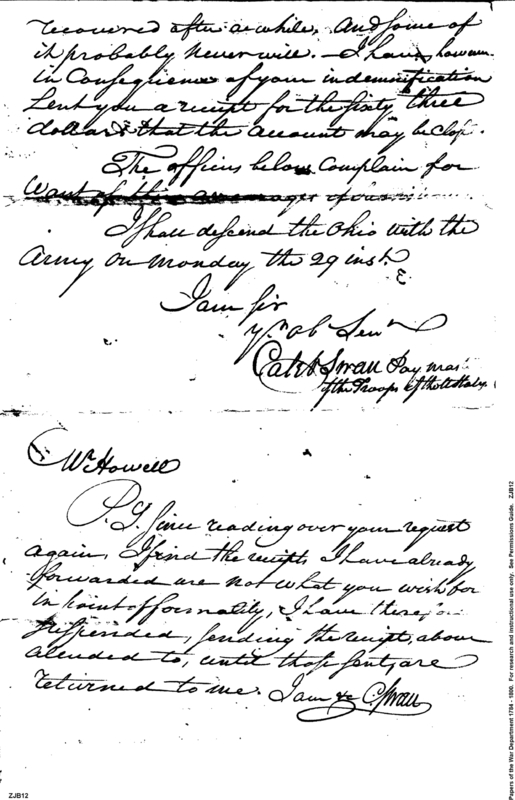 recovered after a while, And some of
it probably never will. — I have, however
in Consequience of your indemnification
Sent you a receipt for the sixty three
dollars & that the account may be clos'd.
The officers below Complain for
Want of their
I shall descend the Ohio with the
Army on Monday the 29 inst.
I am sir
Yr. ob Serv
Caleb Swan Pay mas
of the Troops of the U States
Wm Howell
P.S. Since reading over your request
again, I find the receipts I have already
forwarded are not what you wish for
in point of formality, I have therefor
suspended, sending the receipt, above
aleuded to, until those sent, are
returned to me. I am &c CSwan
ZJB12
Papers of the War Department 1784 - 1800. For research and instructional use only. See Permissions Guide. ZJB12